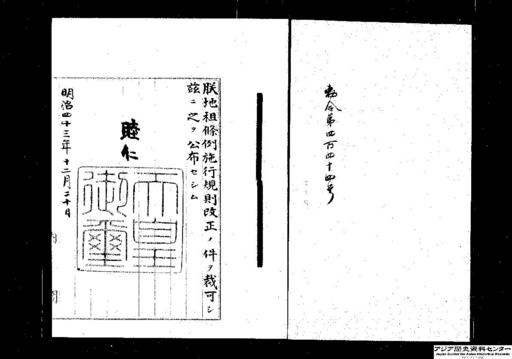 勅令第四百四十四号
朕地租條例施行規則改正ノ件ヲ裁可シ
茲ニ之ヲ公布セシム
睦仁
天皇御璽
明治四十三年十二月二十日
内
閣
アジア歴史資料センター
Japan Center for Asian Historical Records